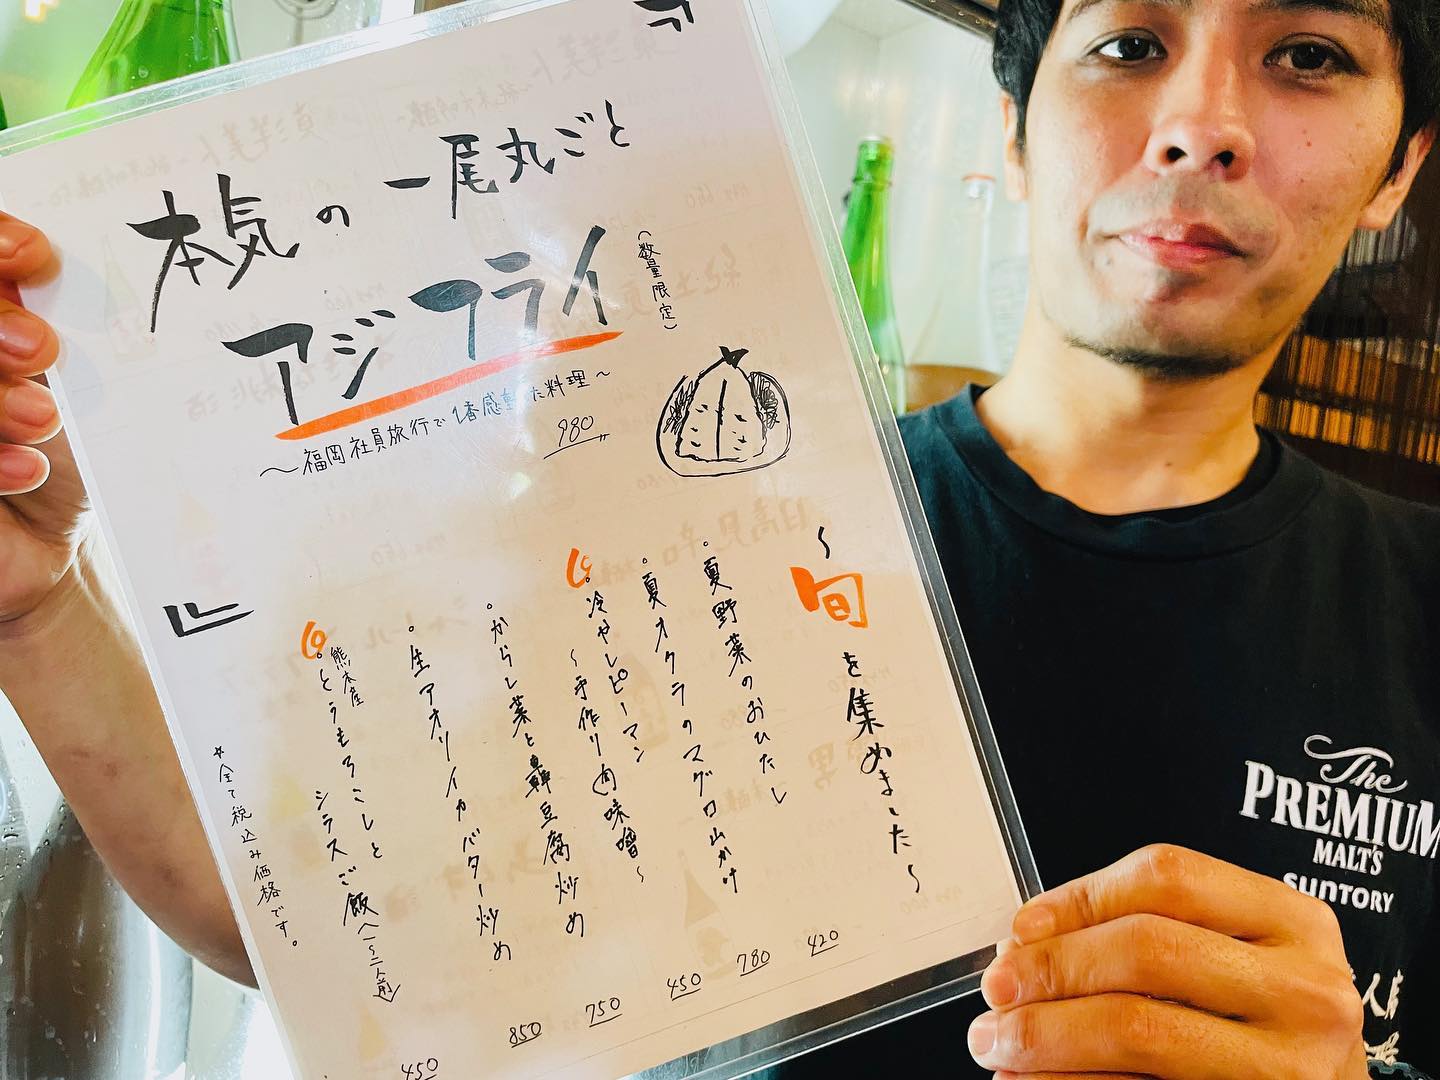 『
本気の一尾丸ごと
アジフライ
(数量限定)
〜福岡社員旅行で1番感動した料理〜
980
』
〜旬を集めました〜
・夏野菜のおひたし
420
・夏オクラのマグロ山かけ
780
・冷やしピーマン
〜手作り肉味噌〜
450
・からし菜と島豆腐炒め
750
・生アオリイカバター炒め
850
熊本産
・とうもろこしと
シラスご飯〈一〜二人前〉
450
*全て税込み価格です。
The
PREMIUM
MALT'S
SUNTORY